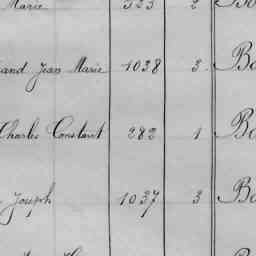 Marie 323 2
and Jean Marie 1038 3 Bo
Charles Constant 282 1 Bo
Joseph 1037 3 Bo